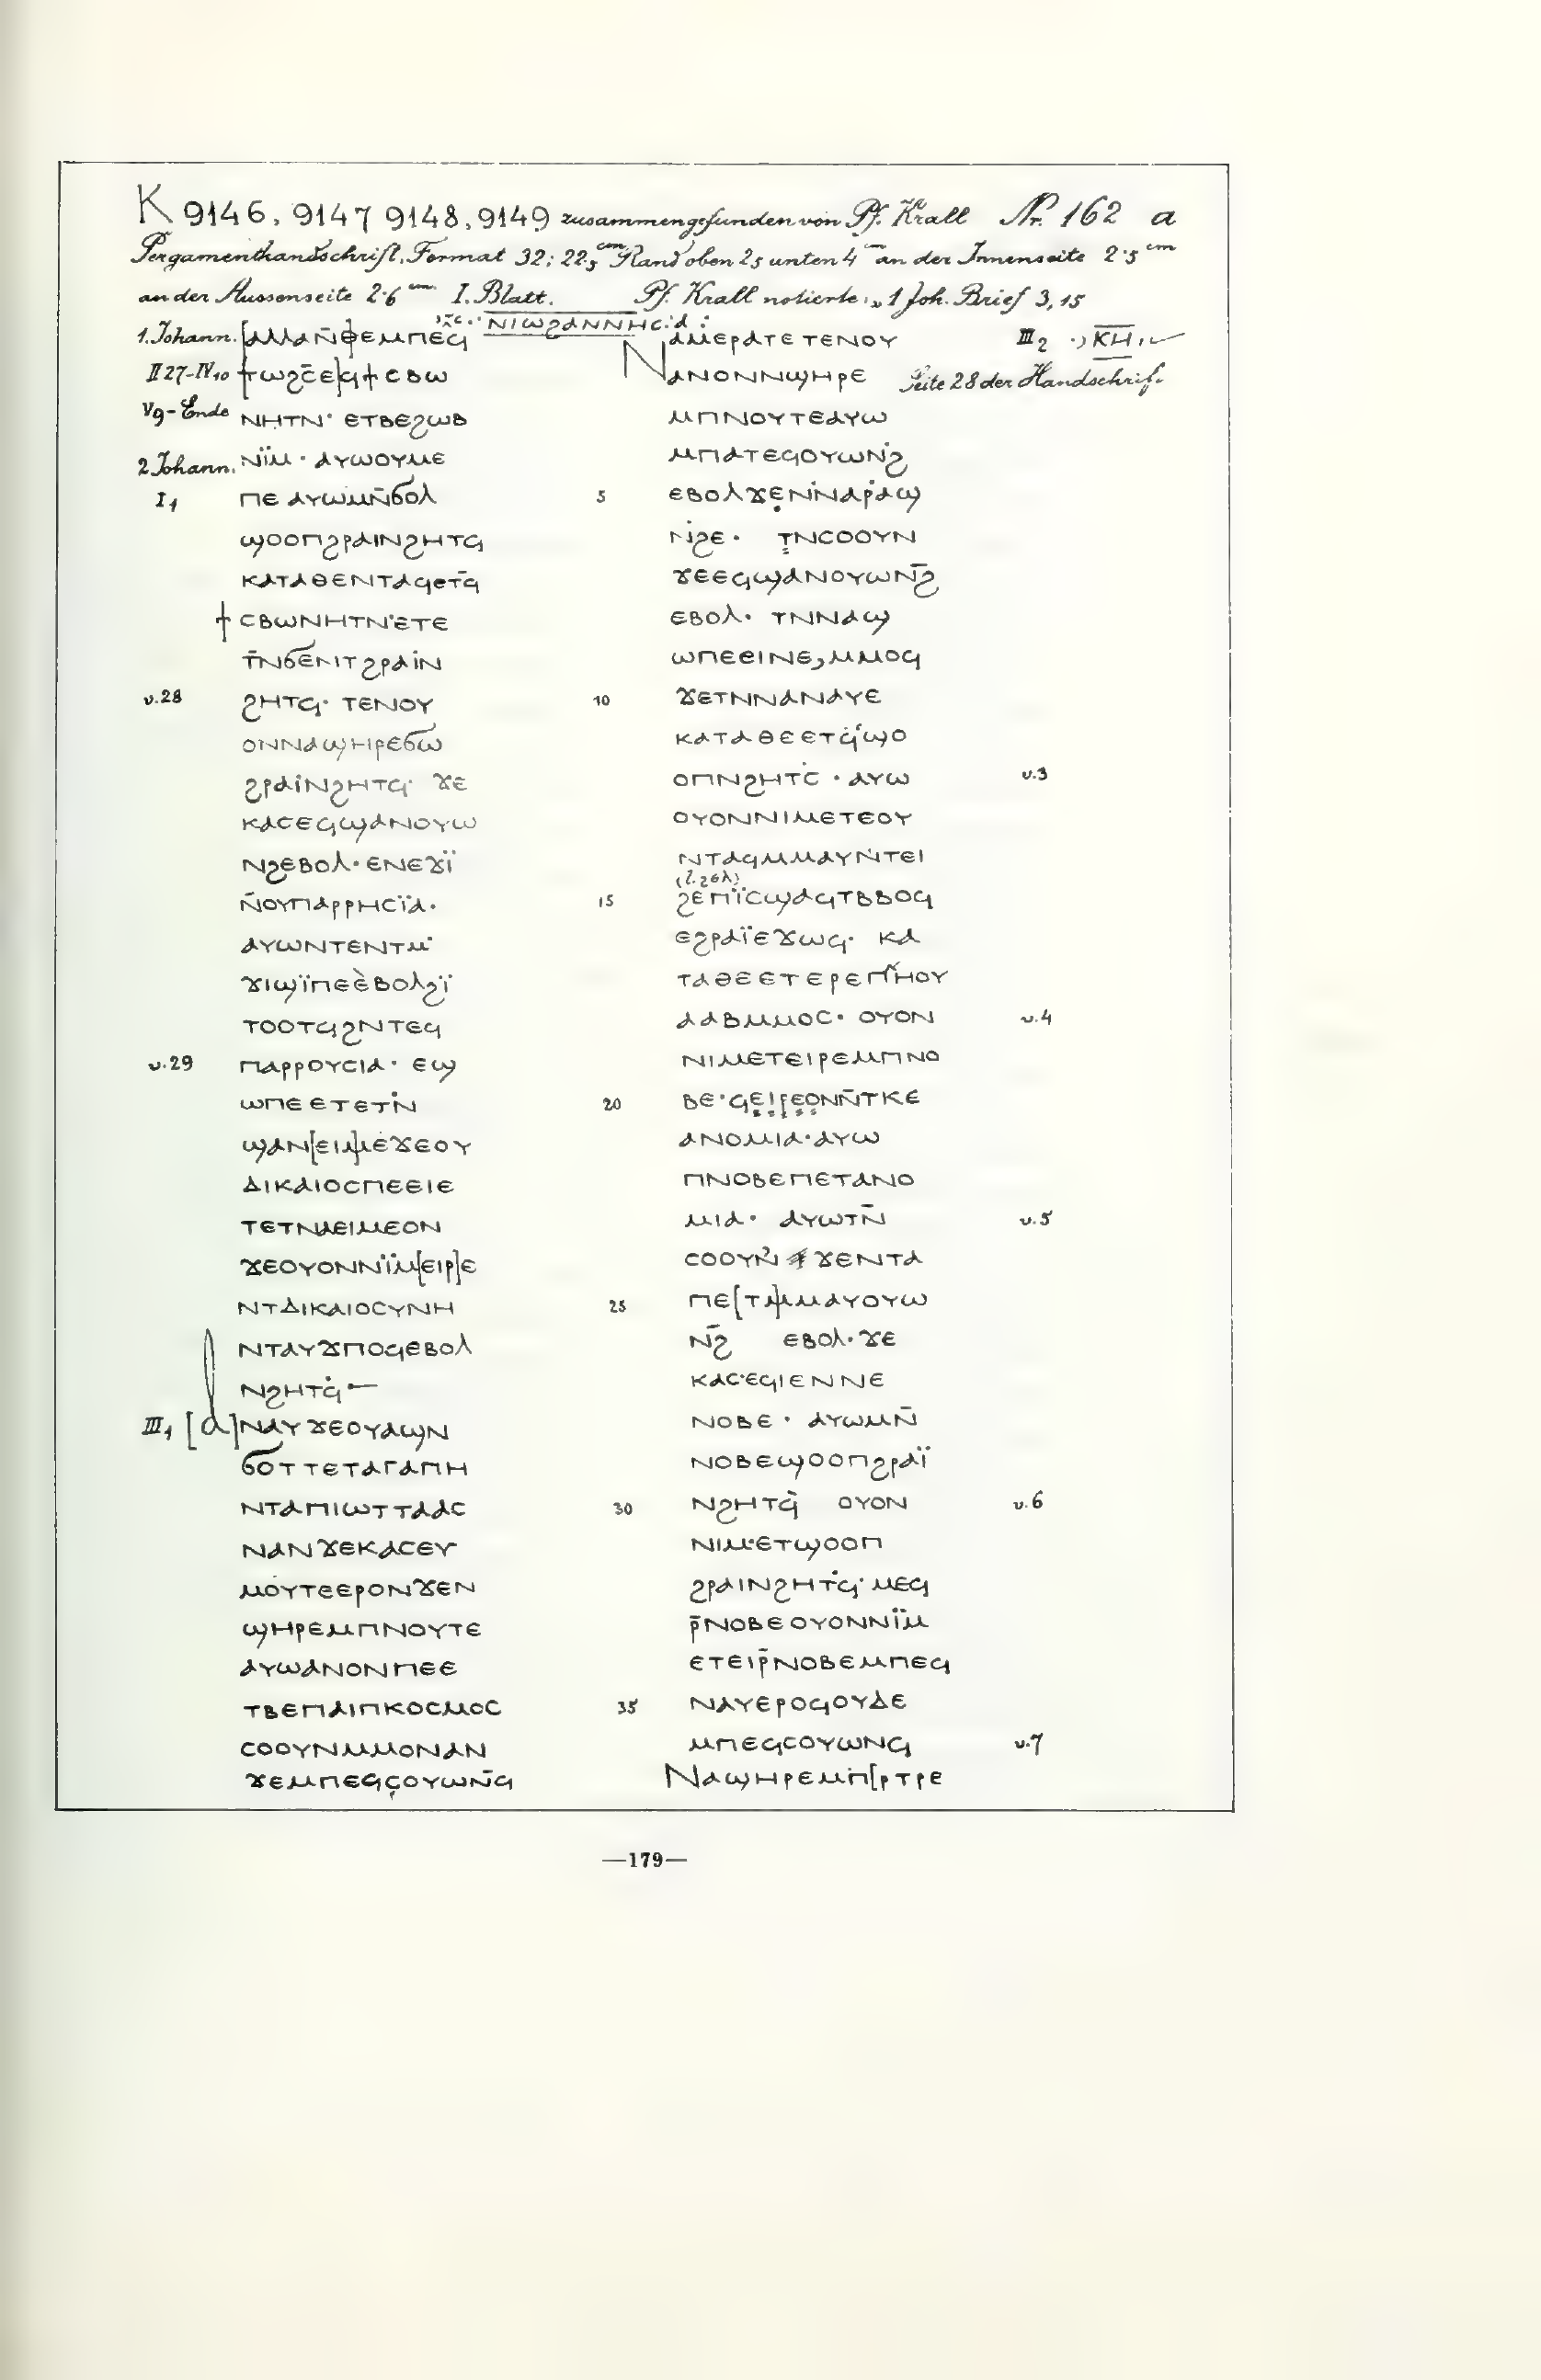 K 9146, 9147 9148, 9149 zusammengefunden von Pf. Krall Nr. 162 a
Pergamenthandschrift, Format 32; 22·5 cm Rand oben 2 5 unten 4 cm an der Innenseite 2·5 cm
an der Aussenseite 2·6 cm I. Blatt. Pf. Krall notierte: „1 Joh. Brief 3, 15
ⲛⲓⲱϩⲁⲛⲛⲏⲥ:ⲁ:
1. Johann. [ⲁⲗⲗⲁⲛ̄ⲑ]ⲉⲙⲡⲉϥ
II 27-IV 10 ϯⲱϩⲥ̄ⲉ]ϥϯⲥⲃⲱ
V 9-Ende ⲛⲏⲧⲛ· ⲉⲧⲃⲉϩⲱⲃ
2 Johann. ⲛⲓ̈ⲙ · ⲁⲩⲱⲟⲩⲙⲉ
I 1 ⲡⲉ ⲁⲩⲱⲙⲛ̄ϭⲟⲗ
ϣⲟⲟⲡϩⲣⲁⲓⲛϩⲏⲧϥ
ⲕⲁⲧⲁⲑⲉⲛⲧⲁϥⲉⲧϥ̄
ϯⲥⲃⲱⲛⲏⲧⲛ·ⲉⲧⲉ
ⲧ̄ⲛϭⲉⲛⲓⲧϩⲣⲁⲓⲛ
v. 28 ϩⲏⲧϥ· ⲧⲉⲛⲟⲩ
ⲟⲛⲛⲁϣⲏⲣⲉϭⲱ
ϩⲣⲁⲓⲛϩⲏⲧϥ· ϫⲉ
ⲕⲁⲥⲉϥϣⲁⲛⲟⲩⲱ
ⲛϩⲉⲃⲟⲗ·ⲉⲛⲉϫⲓ̈
ⲛ̄ⲟⲩⲡⲁⲣⲣⲏⲥⲓ̈ⲁ·
ⲁⲩⲱⲛⲧⲉⲛⲧⲙ·
ϫⲓϣⲓ̈ⲡⲉⲉ̀ⲃⲟⲗϩⲓ̈
ⲧⲟⲟⲧϥϩⲛⲧⲉϥ
v. 29 ⲡⲁⲣⲣⲟⲩⲥⲓⲁ· ⲉϣ
ⲱⲡⲉⲉⲧⲉⲧⲛ̇
ϣⲁⲛ[ⲉⲓⲙ]ⲉϫⲉⲟⲩ
ⲇⲓⲕⲁⲓⲟⲥⲡⲉⲉⲓⲉ
ⲧⲉⲧⲛⲁⲉⲓⲙⲉⲟⲛ
ϫⲉⲟⲩⲟⲛⲛⲓ̈ⲙ[ⲉⲓⲣ]ⲉ
ⲛⲧⲇⲓⲕⲁⲓⲟⲥⲩⲛⲏ
ⲛⲧⲁⲩϫⲡⲟϥⲉⲃⲟⲗ
ⲛϩⲏⲧϥ·—
III 1 [ⲁ]ⲛⲁⲩϫⲉⲟⲩⲁϣⲛ
ϭⲟⲧⲧⲉⲧⲁⲅⲁⲡⲏ
ⲛⲧⲁⲡⲓⲱⲧⲧⲁⲁⲥ
ⲛⲁⲛϫⲉⲕⲁⲥⲉⲩ
ⲙⲟⲩⲧⲉⲉⲣⲟⲛϫⲉⲛ
ϣⲏⲣⲉⲙⲡⲛⲟⲩⲧⲉ
ⲁⲩⲱⲁⲛⲟⲛⲡⲉⲉ
ⲧⲃⲉⲡⲁⲓⲡⲕⲟⲥⲙⲟⲥ
ⲥⲟⲟⲩⲛⲙⲙⲟⲛⲁⲛ
ϫⲉⲙⲡⲉϥⲥⲟⲩⲱⲛ̄ϥ
ⲛⲁⲙⲉⲣⲁⲧⲉ ⲧⲉⲛⲟⲩ III 2 ·, ⲕ̅ⲏ̅
ⲁⲛⲟⲛⲛϣⲏⲣⲉ Seite 28 der Handschrift.
ⲙⲡⲛⲟⲩⲧⲉⲁⲩⲱ
ⲙⲡⲁⲧⲉϥⲟⲩⲱⲛϩ̇
5 ⲉⲃⲟⲗϫⲉⲛⲛ̇ⲛⲁⲣ̇ⲁϣ
ⲛ̇ϩⲉ· ⲧⲛⲥⲟⲟⲩⲛ
ϫⲉⲉϥϣⲁⲛⲟⲩⲱⲛ̄ϩ
ⲉⲃⲟⲗ· ⲧⲛⲛⲁϣ
ⲱⲡⲉⲉⲓⲛⲉ,ⲙⲙⲟϥ
10 ϫⲉⲧⲛⲛⲁⲛⲁⲩⲉ
ⲕⲁⲧⲁⲑⲉⲉⲧϥ̇ϣⲟ
ⲟⲡⲛϩⲏⲧⲥ̇ · ⲁⲩⲱ v. 3
ⲟⲩⲟⲛⲛⲓⲙⲉⲧⲉⲟⲩ
ⲛⲧⲁϥⲙⲙⲁⲩⲛ̇ⲧⲉⲓ
(l. ϩⲉⲗ)
15 ϩⲉⲡⲓ̈ⲥϣⲁϥⲧⲃⲃⲟϥ
ⲉϩⲣⲁⲓ̈ⲉϫⲱϥ· ⲕⲁ
ⲧⲁⲑⲉⲉⲧⲉⲣⲉⲡⲏ̇ⲟⲩ
ⲁⲁⲃⲙⲙⲟⲥ· ⲟⲩⲟⲛ v. 4
ⲛⲓⲙⲉⲧⲉⲓⲣⲉⲙⲡⲛⲟ
20 ⲃⲉ·ϥⲉⲓⲣⲉⲟⲛⲛ̄ⲧⲕⲉ
ⲁⲛⲟⲙⲓⲁ·ⲁⲩⲱ
ⲡⲛⲟⲃⲉⲡⲉⲧⲁⲛⲟ
ⲙⲓⲁ· ⲁⲩⲱⲧⲛ̄ v. 5
ⲥⲟⲟⲩⲛ̇ ϫⲉⲛⲧⲁ
25 ⲡⲉ[ⲧⲙ]ⲙⲁⲩⲟⲩⲱ
ⲛ̄ϩ ⲉⲃⲟⲗ·ϫⲉ
ⲕⲁⲥ·ⲉϥⲓⲉⲛⲛⲉ
ⲛⲟⲃⲉ· ⲁⲩⲱⲙⲛ̄
ⲛⲟⲃⲉϣⲟⲟⲡϩⲣⲁⲓ̈
30 ⲛϩⲏⲧϥ̀ ⲟⲩⲟⲛ v. 6
ⲛⲓⲙ·ⲉⲧϣⲟⲟⲡ
ϩⲣⲁⲓⲛϩⲏⲧϥ̇· ⲙⲉϥ
ⲣ̄ⲛⲟⲃⲉⲟⲩⲟⲛⲛⲓ̈ⲙ
ⲉⲧⲉⲓⲣ̄ⲛⲟⲃⲉⲙⲡⲉϥ
35 ⲛⲁⲩⲉⲣⲟϥⲟⲩⲇⲉ
ⲙⲡⲉϥⲥⲟⲩⲱⲛϥ v. 7
ⲛⲁϣⲏⲣⲉⲙⲡ̇[ⲣⲧⲣⲉ
—179—